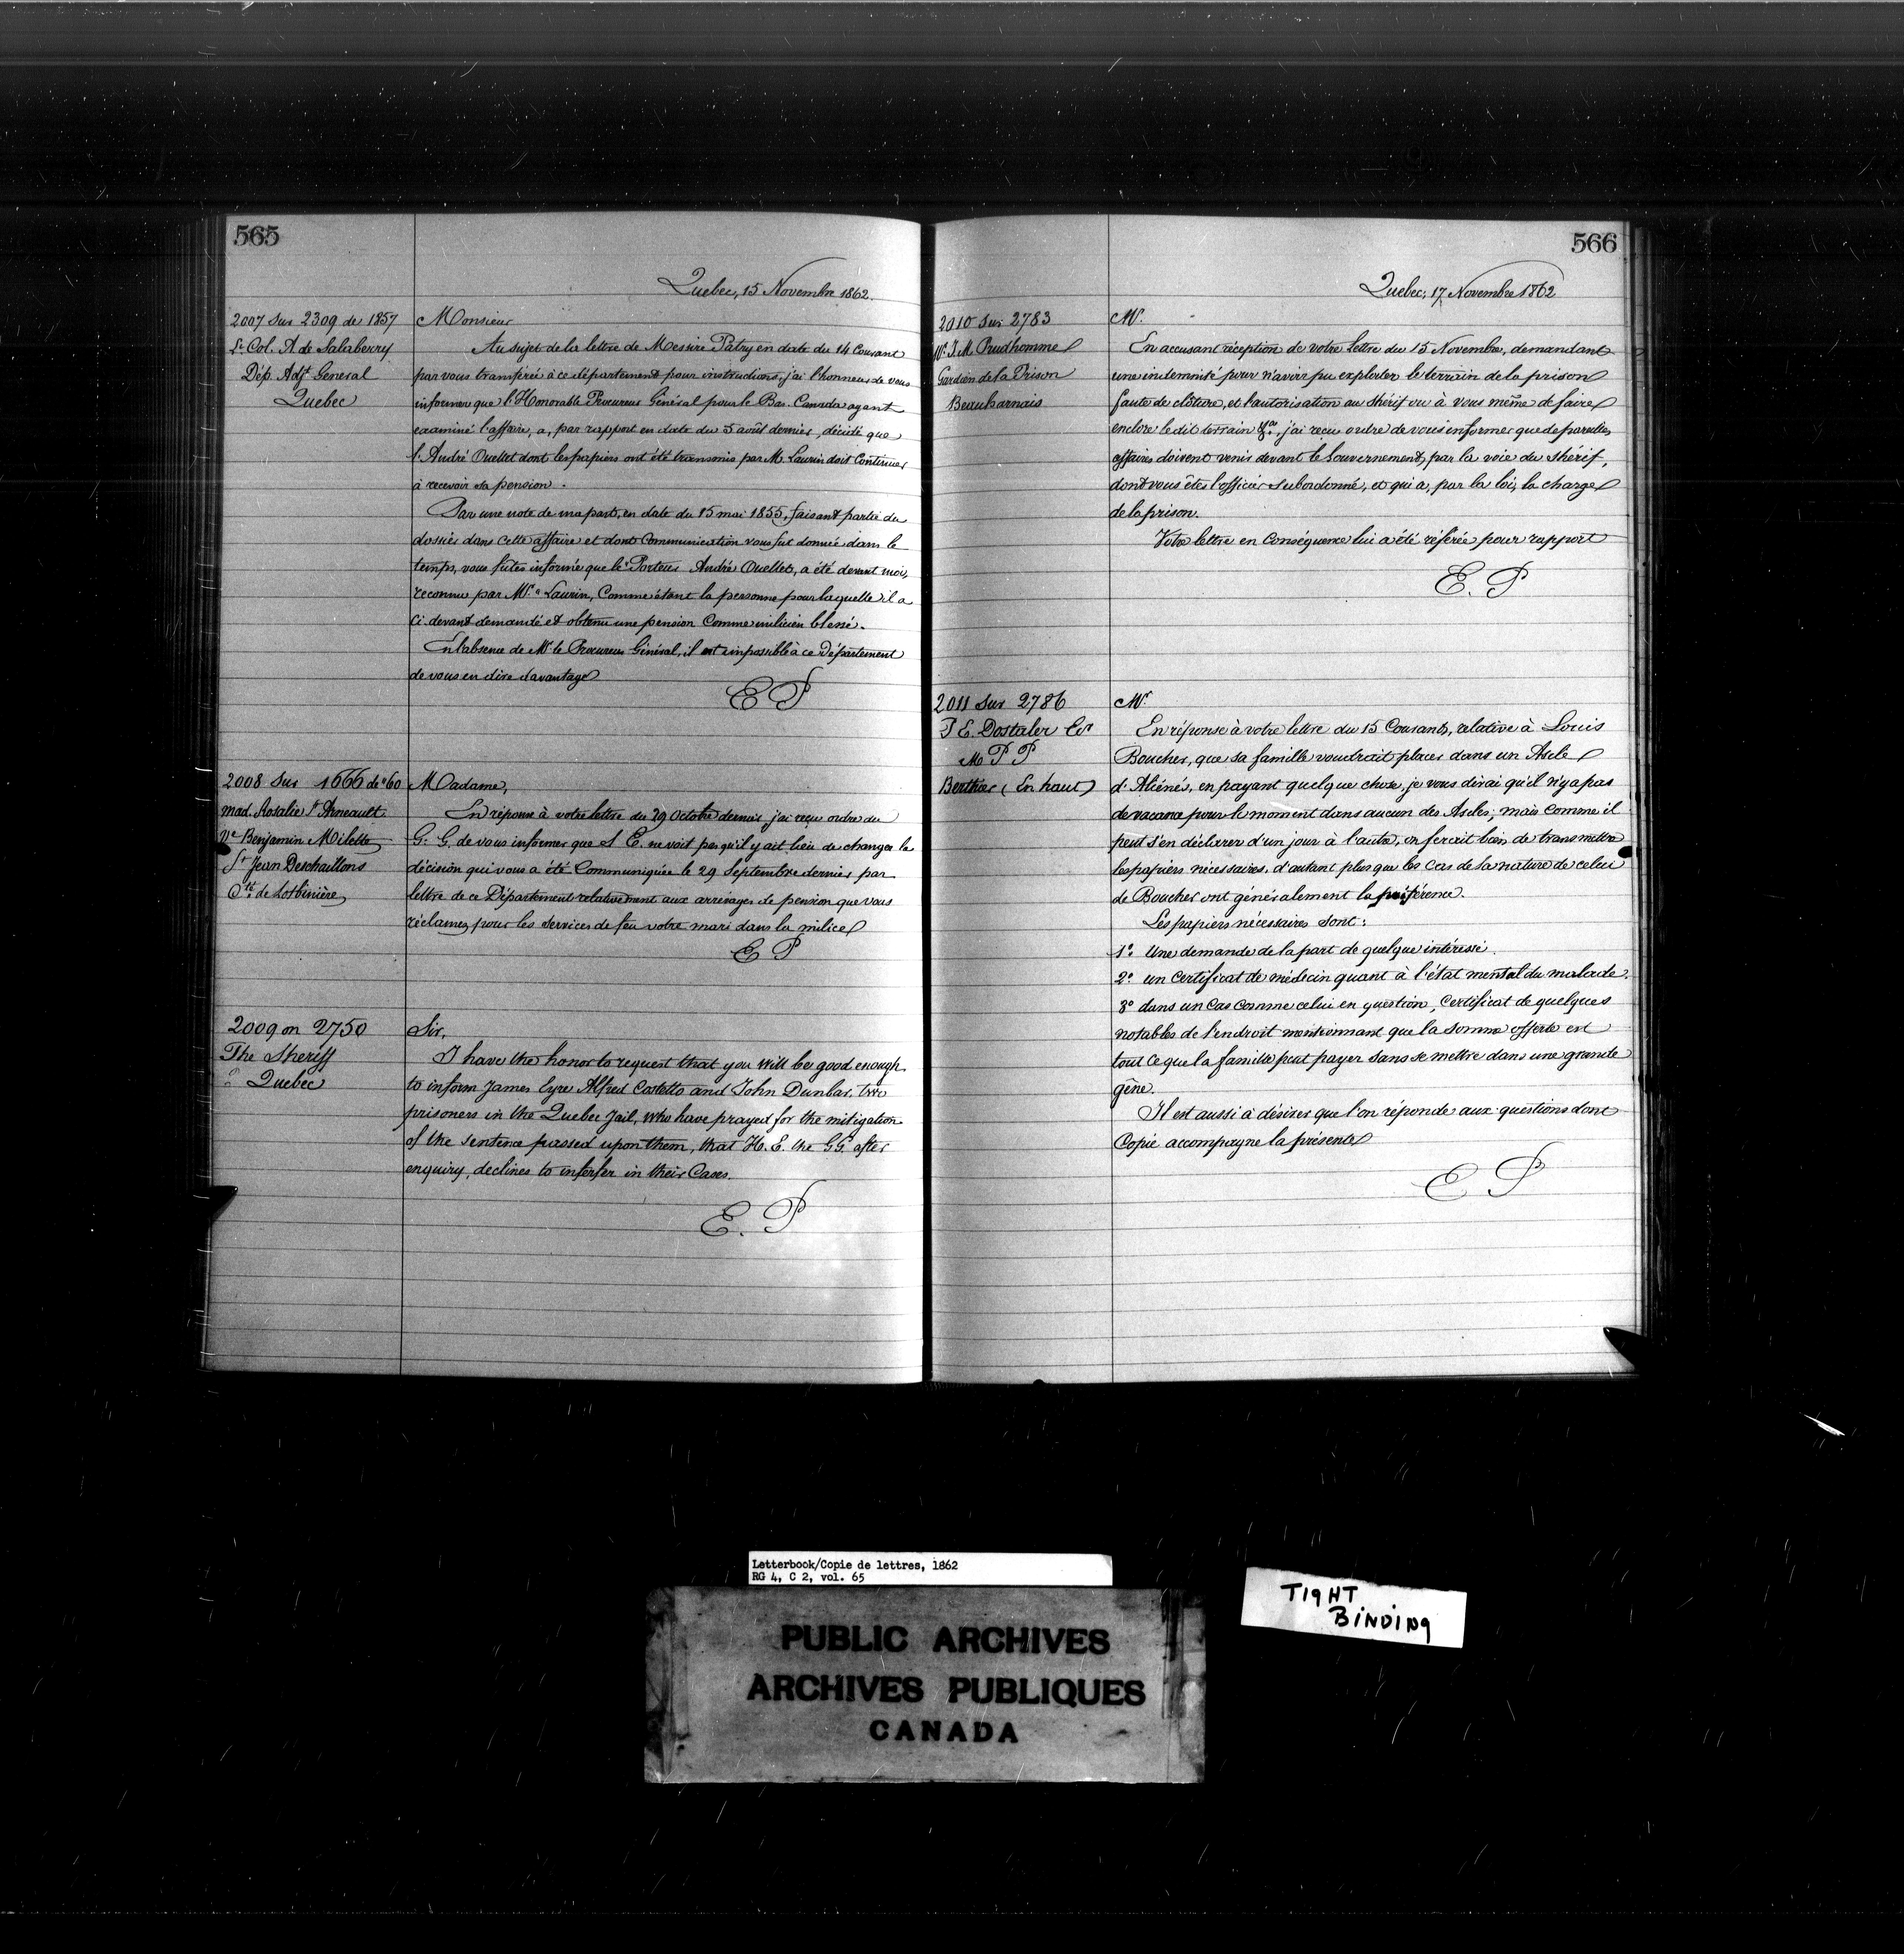 565
Quebec, 15 Novembre 1862.
2007 sur 2309 de 1857
Lt Col. A de Salaberry
Dép. Adjt General
Quebec
Monsieur
Au sujet de la lettre de Messire Patry en date du 14 Courant
par vous transférée à ce département pour instructions, j'ai l'honneur de vous
informer que l'Honorable Procureur Général pour le Bas. Canada ayant
examiné l'affaire, a, par rapport en date du 5 août dernier, décidé que
l. André Ouellet dont les papiers ont été transmis par M. Laurin doit Continuer
à recevoir sa pension.
Par une note de ma part, en date du 15 mai 1855, faisant partie du
dossier dans cette affaire et dont Communication vous fut donnée dans le
temps, vous fûtes informé que le Porteur André Ouellet, a été devant moi,
reconnu par Mr. Laurin, Comme étant la personne pour laquelle il a
Ci. devant demandé et obtenu une pension Comme milicien blessé.
En l'absence de Mr. le Procureur Général, il est impossible à ce Département
de vous en dire davantage
E P
2008 sur 1666 de "60
Mad. Rosalie St Arneault
Ve Benjamin Milette
St Jean Deschaillons
Cté. de Lotbinière
Madame,
En réponse à votre lettre du 29 Octobre dernier, j'ai reçu ordre du
G. G. de vous informer que S E. ne voit pas qu'il y ait lieu de changer la
décision qui vous a été Communiquée le 29 Septembre dernier par
lettre de ce Département relativement aux arrérages de pension que vous
réclamez pour les services de feu votre mari dans la milice
E P
2009 on 2750
The Sheriff
Quebec
Sir,
I have the honor to request that you will be good enough
to inform James Eyre Alfred Costello and John Dunbar, two
prisoners in the Quebec Jail, who have prayed for the mitigation
of the sentence passed upon them, that H. E. the GG. after
enquiry, declines to interfer in their Cases.
E. P
566
Quebec, 17, Novembre 1862
2010 sur 2783
Mr. J. M. Prudhomme
Gardien de la Prison
Beauharnais
Mr.
En accusant réception de votre lettre du 15 Novembre, demandant
une indemnité pour n'avoir pu exploiter le terrain de la prison
faute de clôture, et l'autorisation au shérif ou à vous même de faire
enclore le dit terrain &ca, j'ai reçu ordre de vous informer que de pareilles
affaires doivent venir devant le Gouvernement, par la voie du Shérif,
dont vous êtes l'officier subordonné, et qui a, par la loi, la charge
de la prison.
Votre lettre en Conséquence lui a été référée pour rapport
E. P
2011 sur 2786
P E. Dostaler Er
M P P
Berthier (En haut)
Mr.
En réponse à votre lettre du 15 Courant, relative à Louis
Boucher, que sa famille voudrait placer dans un Asile
d'Aliénés, en payant quelque chose, je vous dirai qu'il n'y a pas
de vacance pour le moment dans aucun des Asiles; mais comme il
peut s'en déclarer d'un jour à l'autre, on ferait bien de transmettre
les papiers nécessaires, d'autant plus que les Cas de la nature de celui
de Boucher ont généralement la préférence.
Les papiers nécessaires sont:
1o. Une demande de la part de quelque intéressé.
2o. un Certificat de médecin quant à l'état mental du malade.
3o dans un Cas comme celui en question, Certificat de quelques
notables de l'endroit mentionnant que la somme offerte est
tout ce que la famille peut payer sans se mettre dans une grande
gêne.
Il est aussi à désirer que l'on réponde aux questions dont
Copie accompagne la présente
E P
Letterbook/Copie de lettres, 1862
RG 4, C 2, vol. 65
TIGHT
BINDING
PUBLIC ARCHIVES
ARCHIVES PUBLIQUES
CANADA